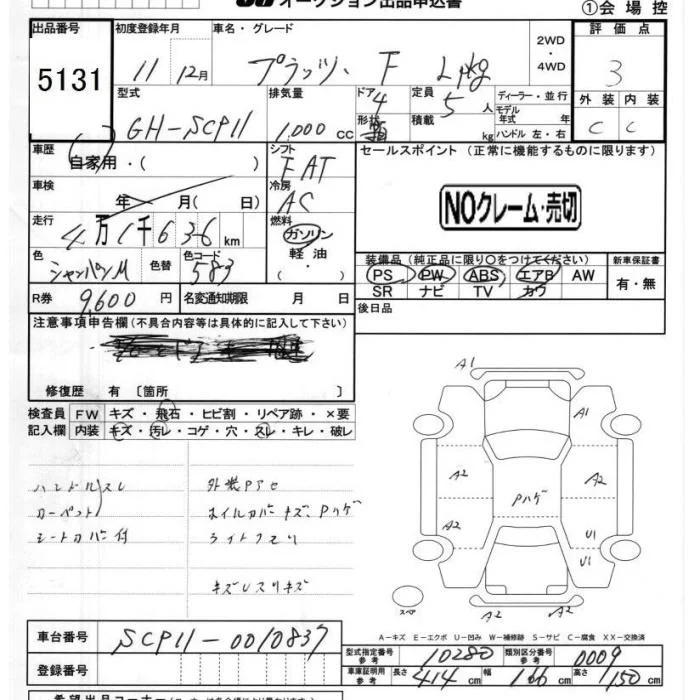 オークション出品申込書
①会場控
出品番号 初度登録年月 車名・グレード 2WD・4WD 評価点
5131 11 12月 プラッツ F Lpkg 3
型式 排気量 ドア 定員 ディーラー・並行 外装 内装
GH-SCP11 1,000cc 4 5人 モデル年式 年 C C
形状 積載 kg ハンドル 左・右
車歴 シフト セールスポイント(正常に機能するものに限ります)
自家用・( ) FAT
車検 冷房
年 月( 日) AC
NOクレーム・売切
走行 燃料
4万1千636km ガソリン
軽油
・( )
色 色替 色コード 装備品(純正品に限り○をつけてください) 新車保証書
シャンパンM 583 PS PW ABS エアB AW 有・無
SR ナビ TV カワ
R券 9,600円 名変通知期限 月 日 後日品
注意事項申告欄(不具合内容等は具体的に記入して下さい)
修復歴 有〔箇所 〕
検査員 FW キズ・飛石・ヒビ割・リペア跡・×要
記入欄 内装 キズ・汚レ・コゲ・穴・スレ・キレ・破レ
ハンドルスレ 外装Pアセ
カーペット ホイルカバーキズ、Pハゲ
シートカバー付 ライトクモリ
キズUスリキズ
A1
A1
A2 A2
Pハゲ
A2 U1
U1
スペア
A2 A2
A-キズ E-エクボ U-凹み W-補修跡 S-サビ C-腐食 XX-交換済
車台番号 SCP11-0010837
型式指定番号 参考 10280 類別区分番号 参考 0009
登録番号
車庫証明用 参考 長さ 414cm 幅 166cm 高さ 150cm
希望出品コーナー